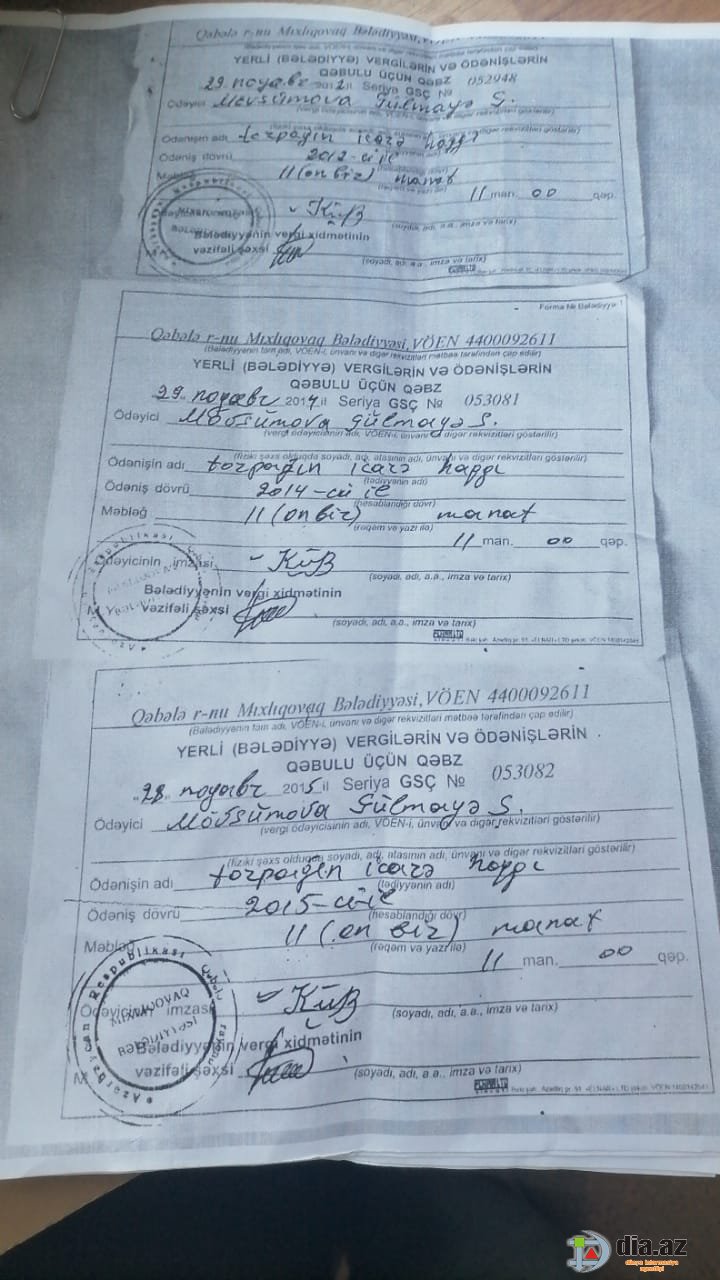 Qəbələ r-nu Mıxlıqovaq Bələdiyyəsi,
YERLİ (BƏLƏDİYYƏ) VERGİLƏRİN VƏ ÖDƏNİŞLƏRİN
QƏBULU ÜÇÜN QƏBZ
29 noyabr 2012 il Seriya GSÇ № 052948
Ödəyici Mövsümova Gülmayə S.
Ödənişin adı torpağın icarə haqqı
Ödəniş dövrü 2012-ci il
Məbləğ 11 (on bir) manat
11 man. 00 qəp.
Bələdiyyənin vergi xidmətinin
vəzifəli şəxsi
(soyadı, adı, a.a., imza və tarix)
Forma № Bələdiyyə 1
Qəbələ r-nu Mıxlıqovaq Bələdiyyəsi, VÖEN 4400092611
(Bələdiyyənin tam adı, VÖEN-i, ünvanı və digər rekvizitləri mətbəə tərəfindən çap edilir)
YERLİ (BƏLƏDİYYƏ) VERGİLƏRİN VƏ ÖDƏNİŞLƏRİN
QƏBULU ÜÇÜN QƏBZ
29 noyabr 2014 il Seriya GSÇ № 053081
Ödəyici Mövsümova Gülmayə S.
(vergi ödəyicisinin adı, VÖEN-i, ünvanı və digər rekvizitləri göstərilir)
(fiziki şəxs olduqda soyadı, adı, atasının adı, ünvanı və digər rekvizitləri göstərilir)
Ödənişin adı torpağın icarə haqqı
(tədiyyənin adı)
Ödəniş dövrü 2014-cü il
(hesablandığı dövr)
Məbləğ 11 (on bir) manat
(rəqəm və yazı ilə)
11 man. 00 qəp.
Ödəyicinin imzası
(soyadı, adı, a.a., imza və tarix)
Bələdiyyənin vergi xidmətinin
M.Y. vəzifəli şəxsi
(soyadı, adı, a.a., imza və tarix)
Qəbələ r-nu Mıxlıqovaq Bələdiyyəsi, VÖEN 4400092611
(Bələdiyyənin tam adı, VÖEN-i, ünvanı və digər rekvizitləri mətbəə tərəfindən çap edilir)
YERLİ (BƏLƏDİYYƏ) VERGİLƏRİN VƏ ÖDƏNİŞLƏRİN
QƏBULU ÜÇÜN QƏBZ
28 noyabr 2015 il Seriya GSÇ № 053082
Ödəyici Mövsümova Gülmayə S.
(vergi ödəyicisinin adı, VÖEN-i, ünvanı və digər rekvizitləri göstərilir)
(fiziki şəxs olduqda soyadı, adı, atasının adı, ünvanı və digər rekvizitləri göstərilir)
Ödənişin adı torpağın icarə haqqı
(tədiyyənin adı)
Ödəniş dövrü 2015-ci il
(hesablandığı dövr)
Məbləğ 11 (on bir) manat
(rəqəm və yazı ilə)
11 man. 00 qəp.
Ödəyicinin imzası
(soyadı, adı, a.a., imza və tarix)
Bələdiyyənin vergi xidmətinin
vəzifəli şəxsi
(soyadı, adı, a.a., imza və tarix)
Azərbaycan Respublikası Qəbələ rayonu
MIXLIQOVAQ
BƏLƏDİYYƏSİ
dia.az
dünya informasiya
agentliyi